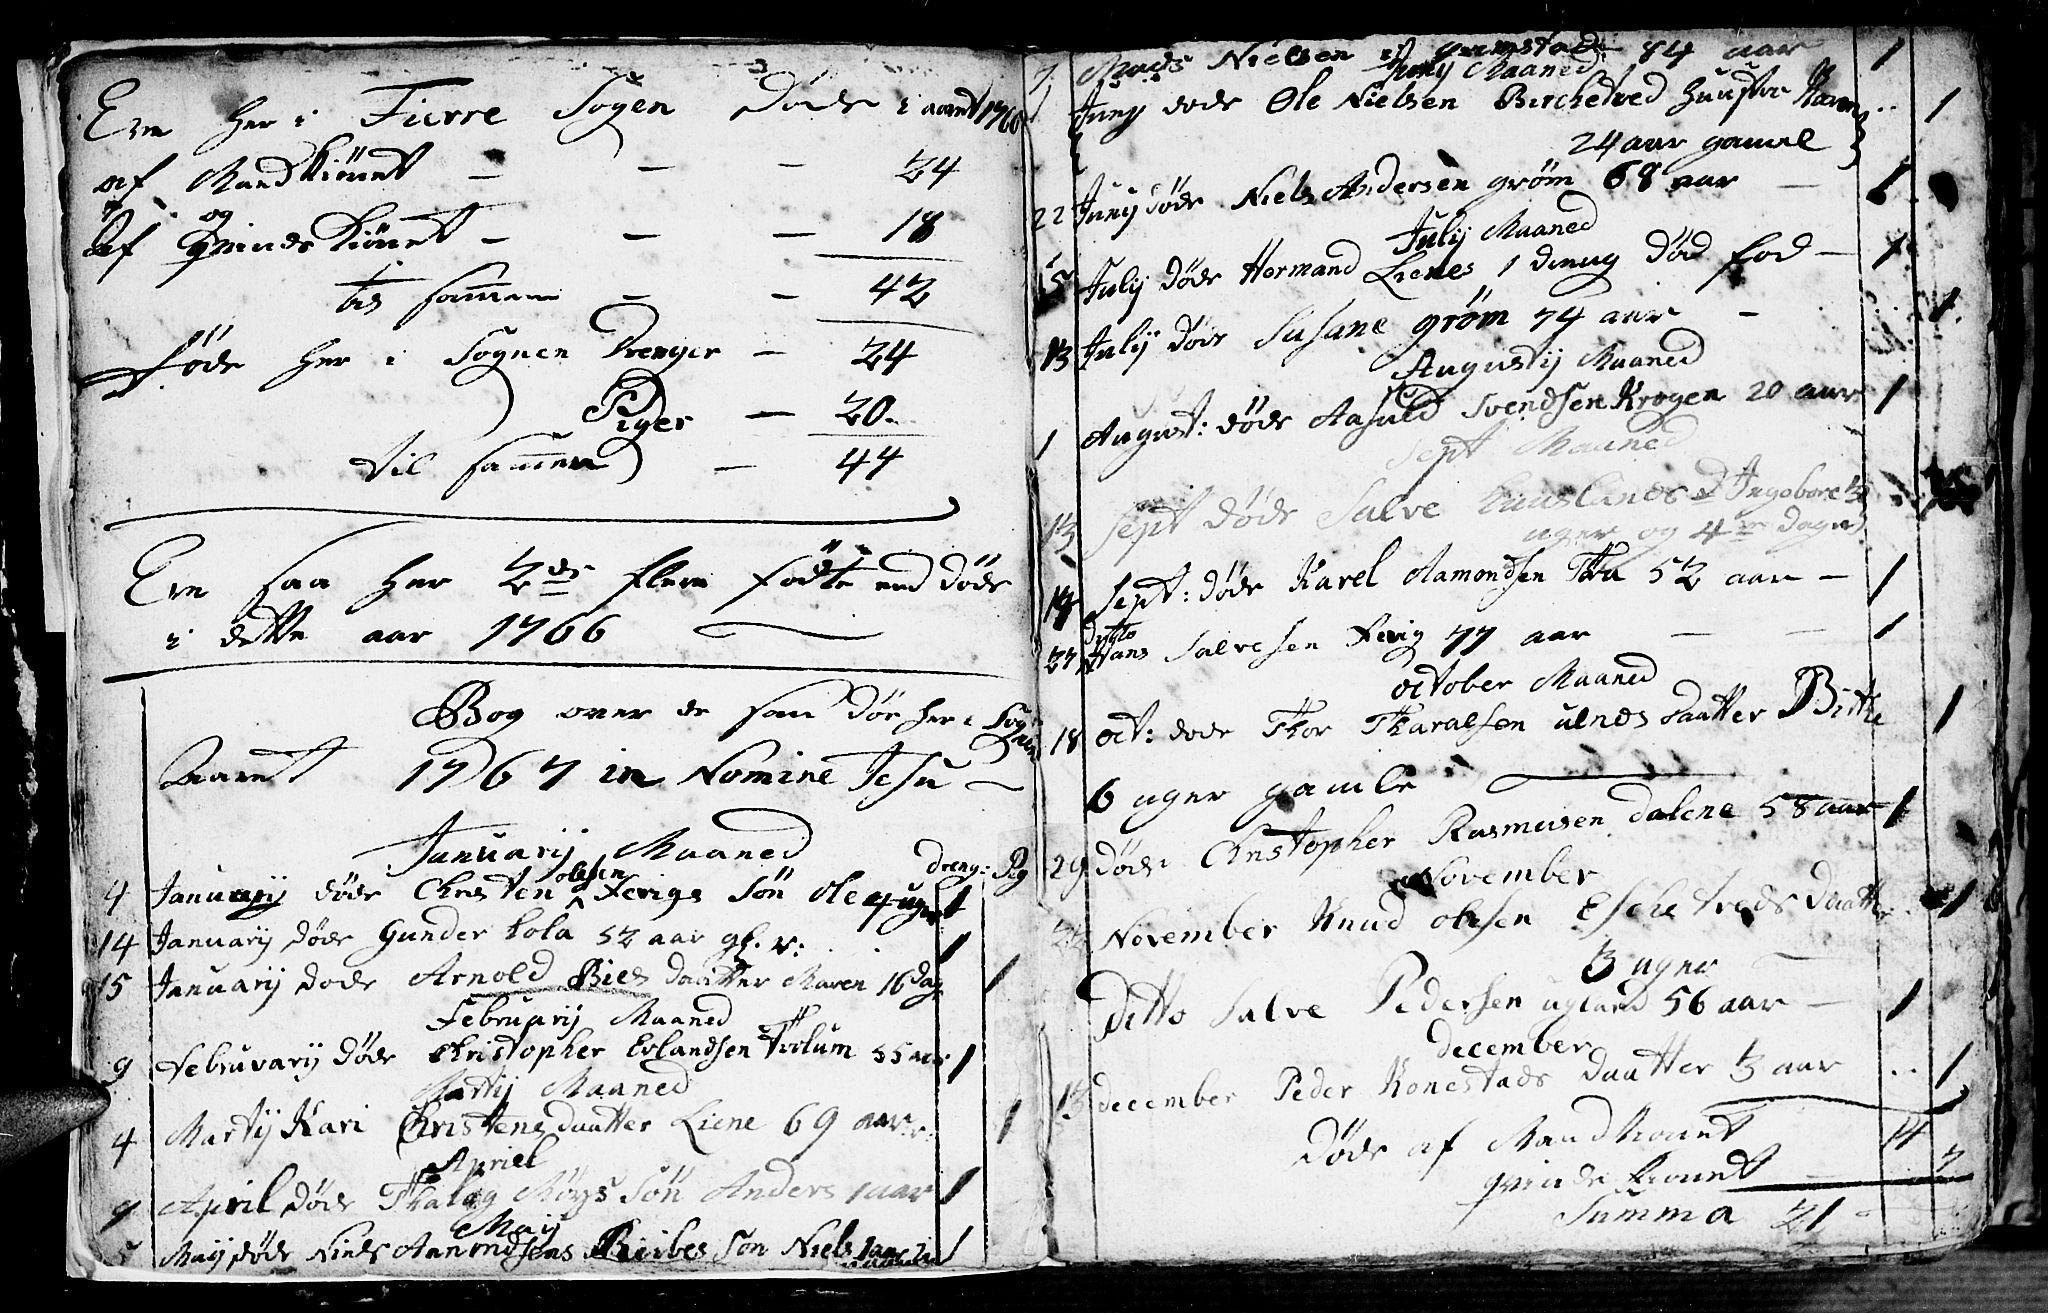 Ere her i Fierre Sogen døde i aaret 1766
af Mandkiønet — — — 24
og
af qvindekiønet — — — 18
til sammen — — 42
føde her i Sognen Drenger — 24
Piger — 20
til sammen — 44
Ere saa her 2de flere fødte end døde
i dette aar 1766
Bog over de som dør her i Sognen
Aaret 1767 in Nomine Jesu
Januarij Maaned
Dreng: Pig
4 Januarij døde Christen Olsen Fevigs søn Ole 4 uger 1
14 Januarij døde Gunder Lola 52 aar gl. 1
15 Januarij døde Arnold Bies daatter Maren 16 Dag 1
Februarij Maaned
9 Februvarij døde Christopher Erlandsen Trolum 55 aar 1
Martij Maaned
4 Martij Kari Christens daatter Liene 69 aar 1
Apriel
9 April døde Thaleg Møys søn Anders 1 aar 1
Maij
5 Maij døde Niels Aamondsens Biibes søn Niels 1 aar
7 Mads Nielsen 84 aar 1
Junij Maaned
Junij døde Ole Nielsen Birchetved hustroe Karen 1
24 aar gamel
22 Junij døde Niels Andersen grøm 68 aar — 1
Julij Maaned
5 Julij døde Hermand Lienes 1 dreng død fød — 1
13 Julij døde Susane grøm 74 aar — 1
Augustij Maaned
1 August: døde Aasuld Svendsen Krogen 20 aar 1
Sept Maaned
13 Sept døde Salve d Ingebore 3
uger og 4re dager
19 Sept: døde Karel Aamondsen 52 aar — 1
dytto
27 Hans Salvesen Fevig 77 aar — — 1
October Maaned
18 oct: døde Thor Tharalsen ulnes daatter Birthe 1
6 uger gamle
29 døde Christopher Rasmusen dalene 58 aar 1
November
November Knud olesen Eschetveds daatter 1
3 uger
Ditto Salve Pedersen ugland 56 aar — 1
december
13 december Peder Konestads daatter 3 aar 1
Døde af Mandkiønet 14
qvinde kiønet — 7
Summa 21